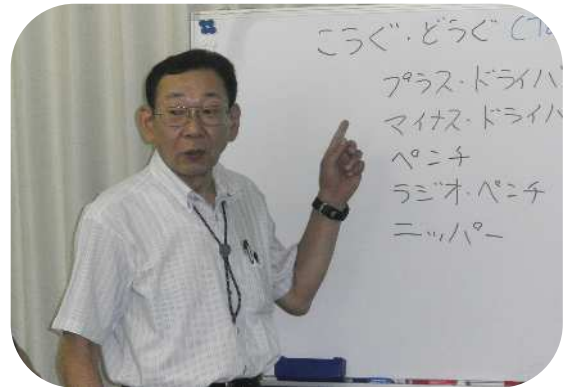 こうぐ・どうぐ
プラス・ドライバ
マイナス・ドライバ
ペンチ
ラジオ・ペンチ
ニッパー